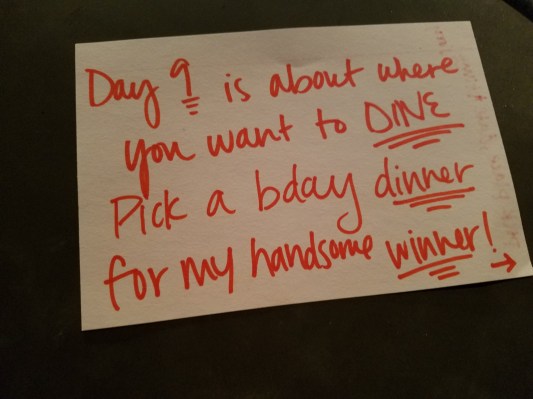 Day 9 is about where
you want to DINE
Pick a bday dinner
for my handsome winner!
→